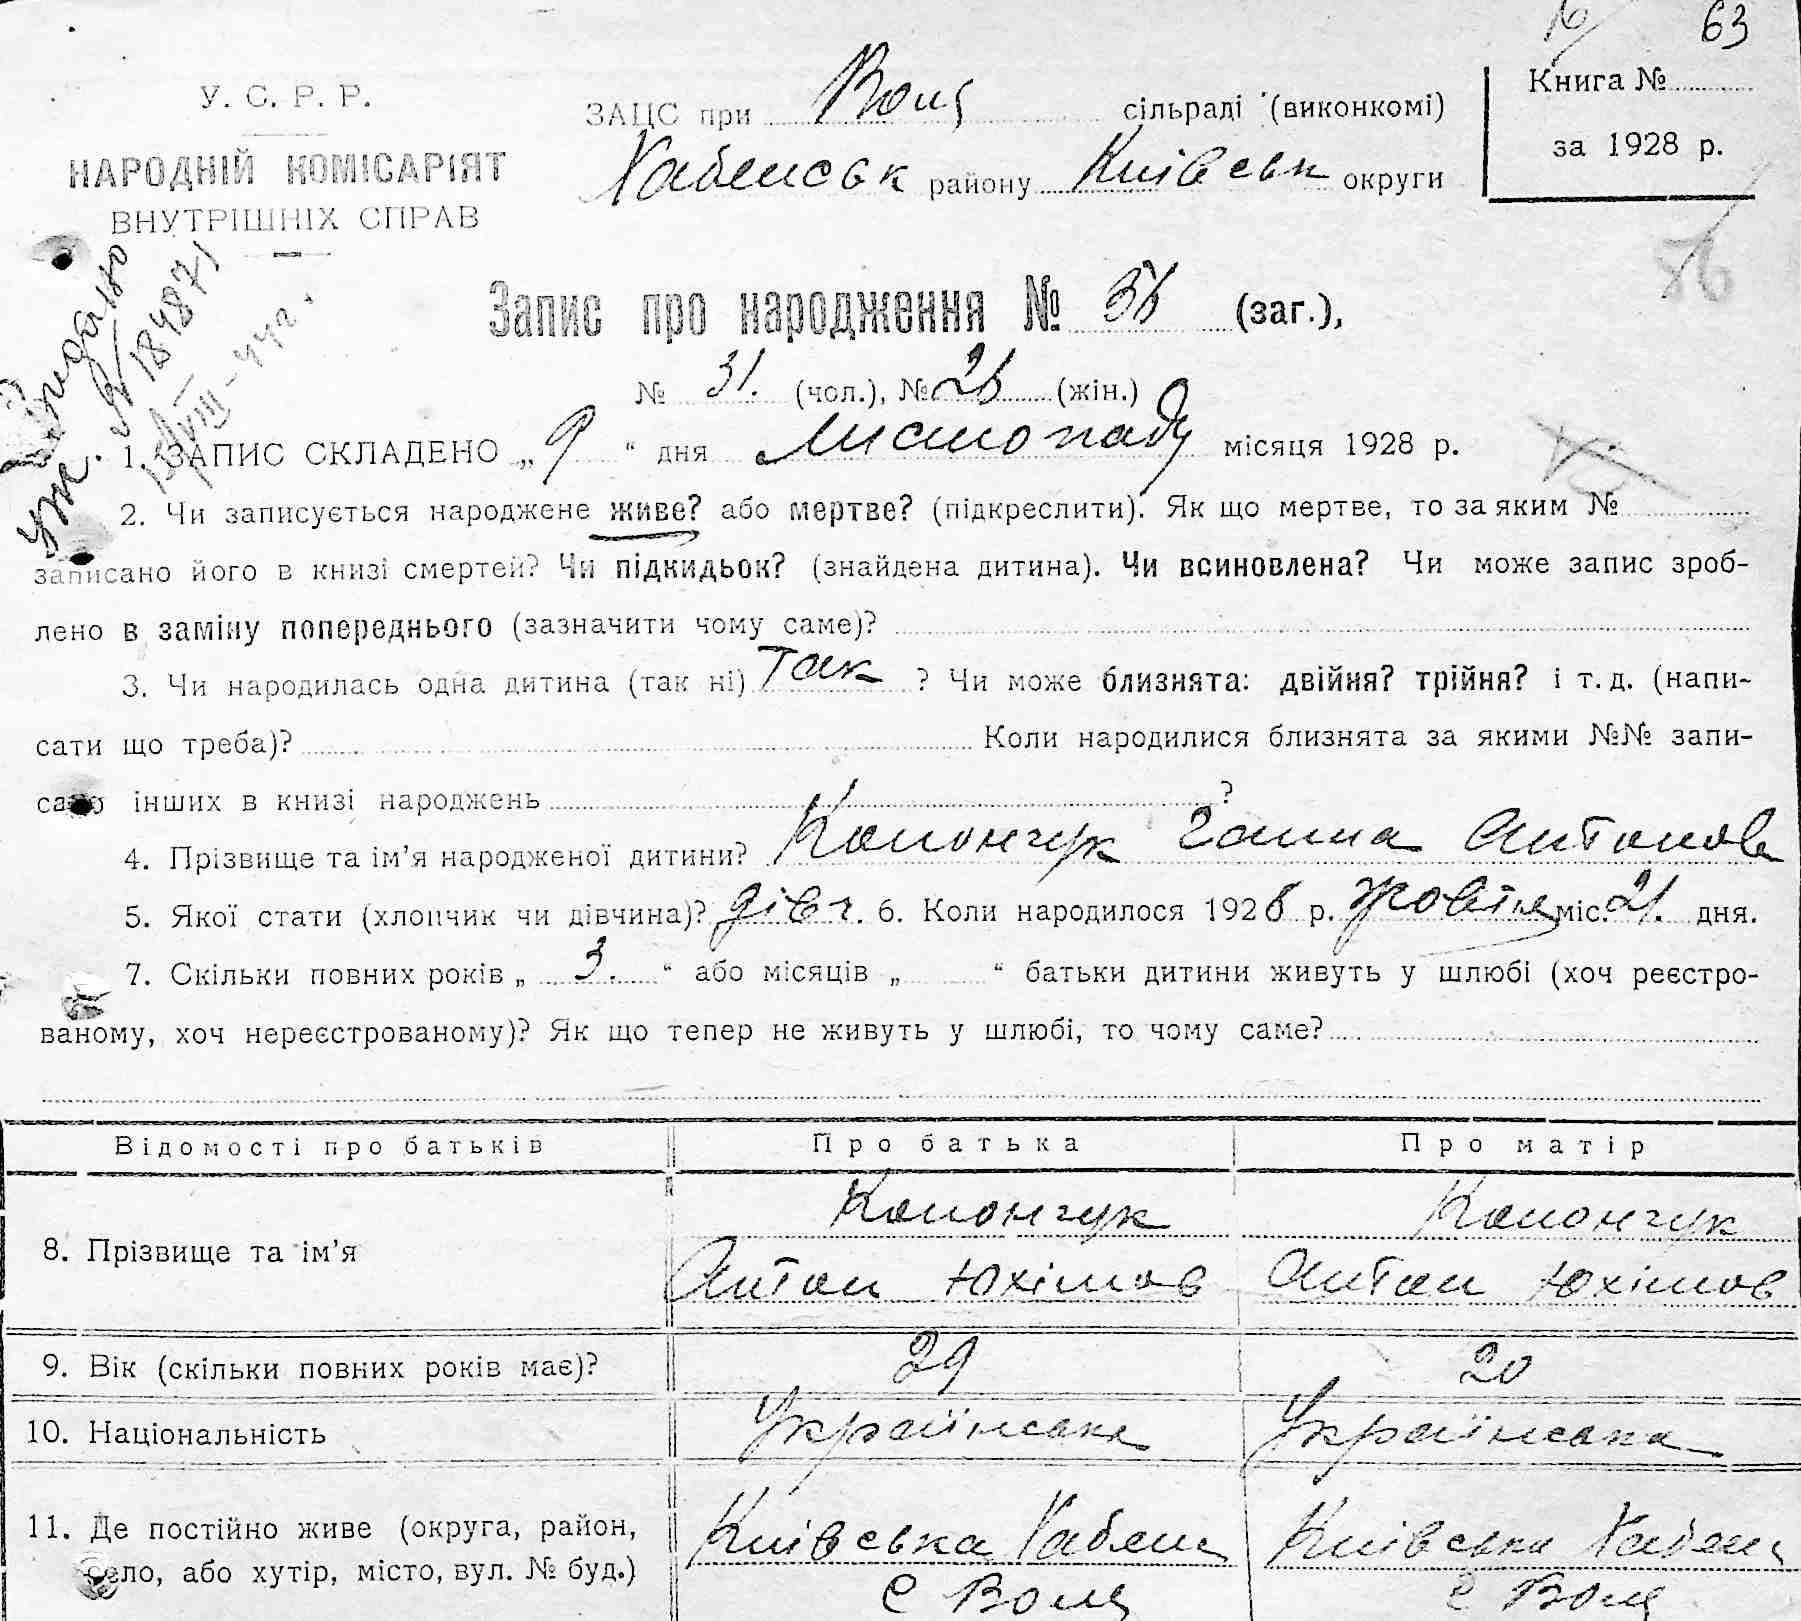 63
У. С. Р. Р.
НАРОДНІЙ КОМІСАРІЯТ
ВНУТРІШНІХ СПРАВ
ЗАЦС при Волц сільраді (виконкомі)
Хабенськ району Київськ округи
Книга №
за 1928 р.
№ 184871
VIII-44г.
Запис про народження № 56 (заг.),
№ 31. (чол.), № 26 (жін.)
1. ЗАПИС СКЛАДЕНО „9“ дня листопаду місяця 1928 р.
2. Чи записується народжене живе? або мертве? (підкреслити). Як що мертве, то за яким №
записано його в книзі смертей? Чи підкидьок? (знайдена дитина). Чи всиновлена? Чи може запис зроб-
лено в заміну попереднього (зазначити чому саме)?
3. Чи народилась одна дитина (так ні) так ? Чи може близнята: двійня? трійня? і т. д. (напи-
сати що треба)? Коли народилися близнята за якими №№ запи-
сано інших в книзі народжень ?
4. Прізвище та ім’я народженої дитини? Конончук Ганна Антонов
5. Якої стати (хлопчик чи дівчина)? дівч. 6. Коли народилося 1928 р. жовтня міс. 21. дня.
7. Скільки повних років „ 3. “ або місяців „ “ батьки дитини живуть у шлюбі (хоч реєстро-
ваному, хоч нереєстрованому)? Як що тепер не живуть у шлюбі, то чому саме?
Відомості про батьків Про батька Про матір
Конончук Конончук
8. Прізвище та ім’я
Антон Юхімов Антон Юхімов
9. Вік (скільки повних років має)? 29 20
10. Національність Українська Українська
11. Де постійно живе (округа, район, Київська Хабенс Київська Хабенс
село, або хутір, місто, вул. № буд.) с Волц с Волц